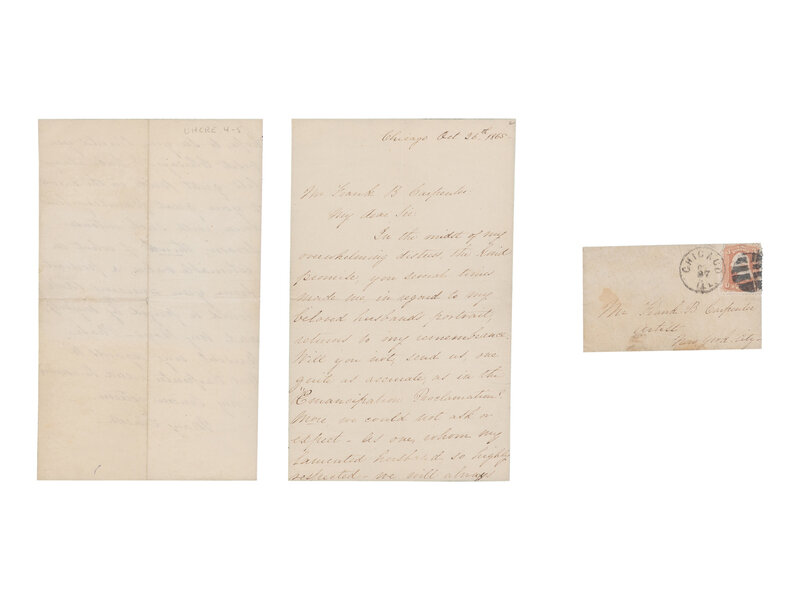 UHCRE 4-5
Chicago Oct 26th 1865
Mr Frank B Carpenter
My dear Sir
In the midst of my
overwhelming distress, the kind
promise, you several times
made me in regard to my
beloved husband's portrait,
returns to my remembrance.
Will you not, send us, one
quite as accurate, as in the
"Emancipation Proclamation"
More, we could not ask or
expect - As one, whom my
lamented husband, so highly
respected - we will always
CHICAGO
27
ILL
Mr Frank B Carpenter
Artist
New York City